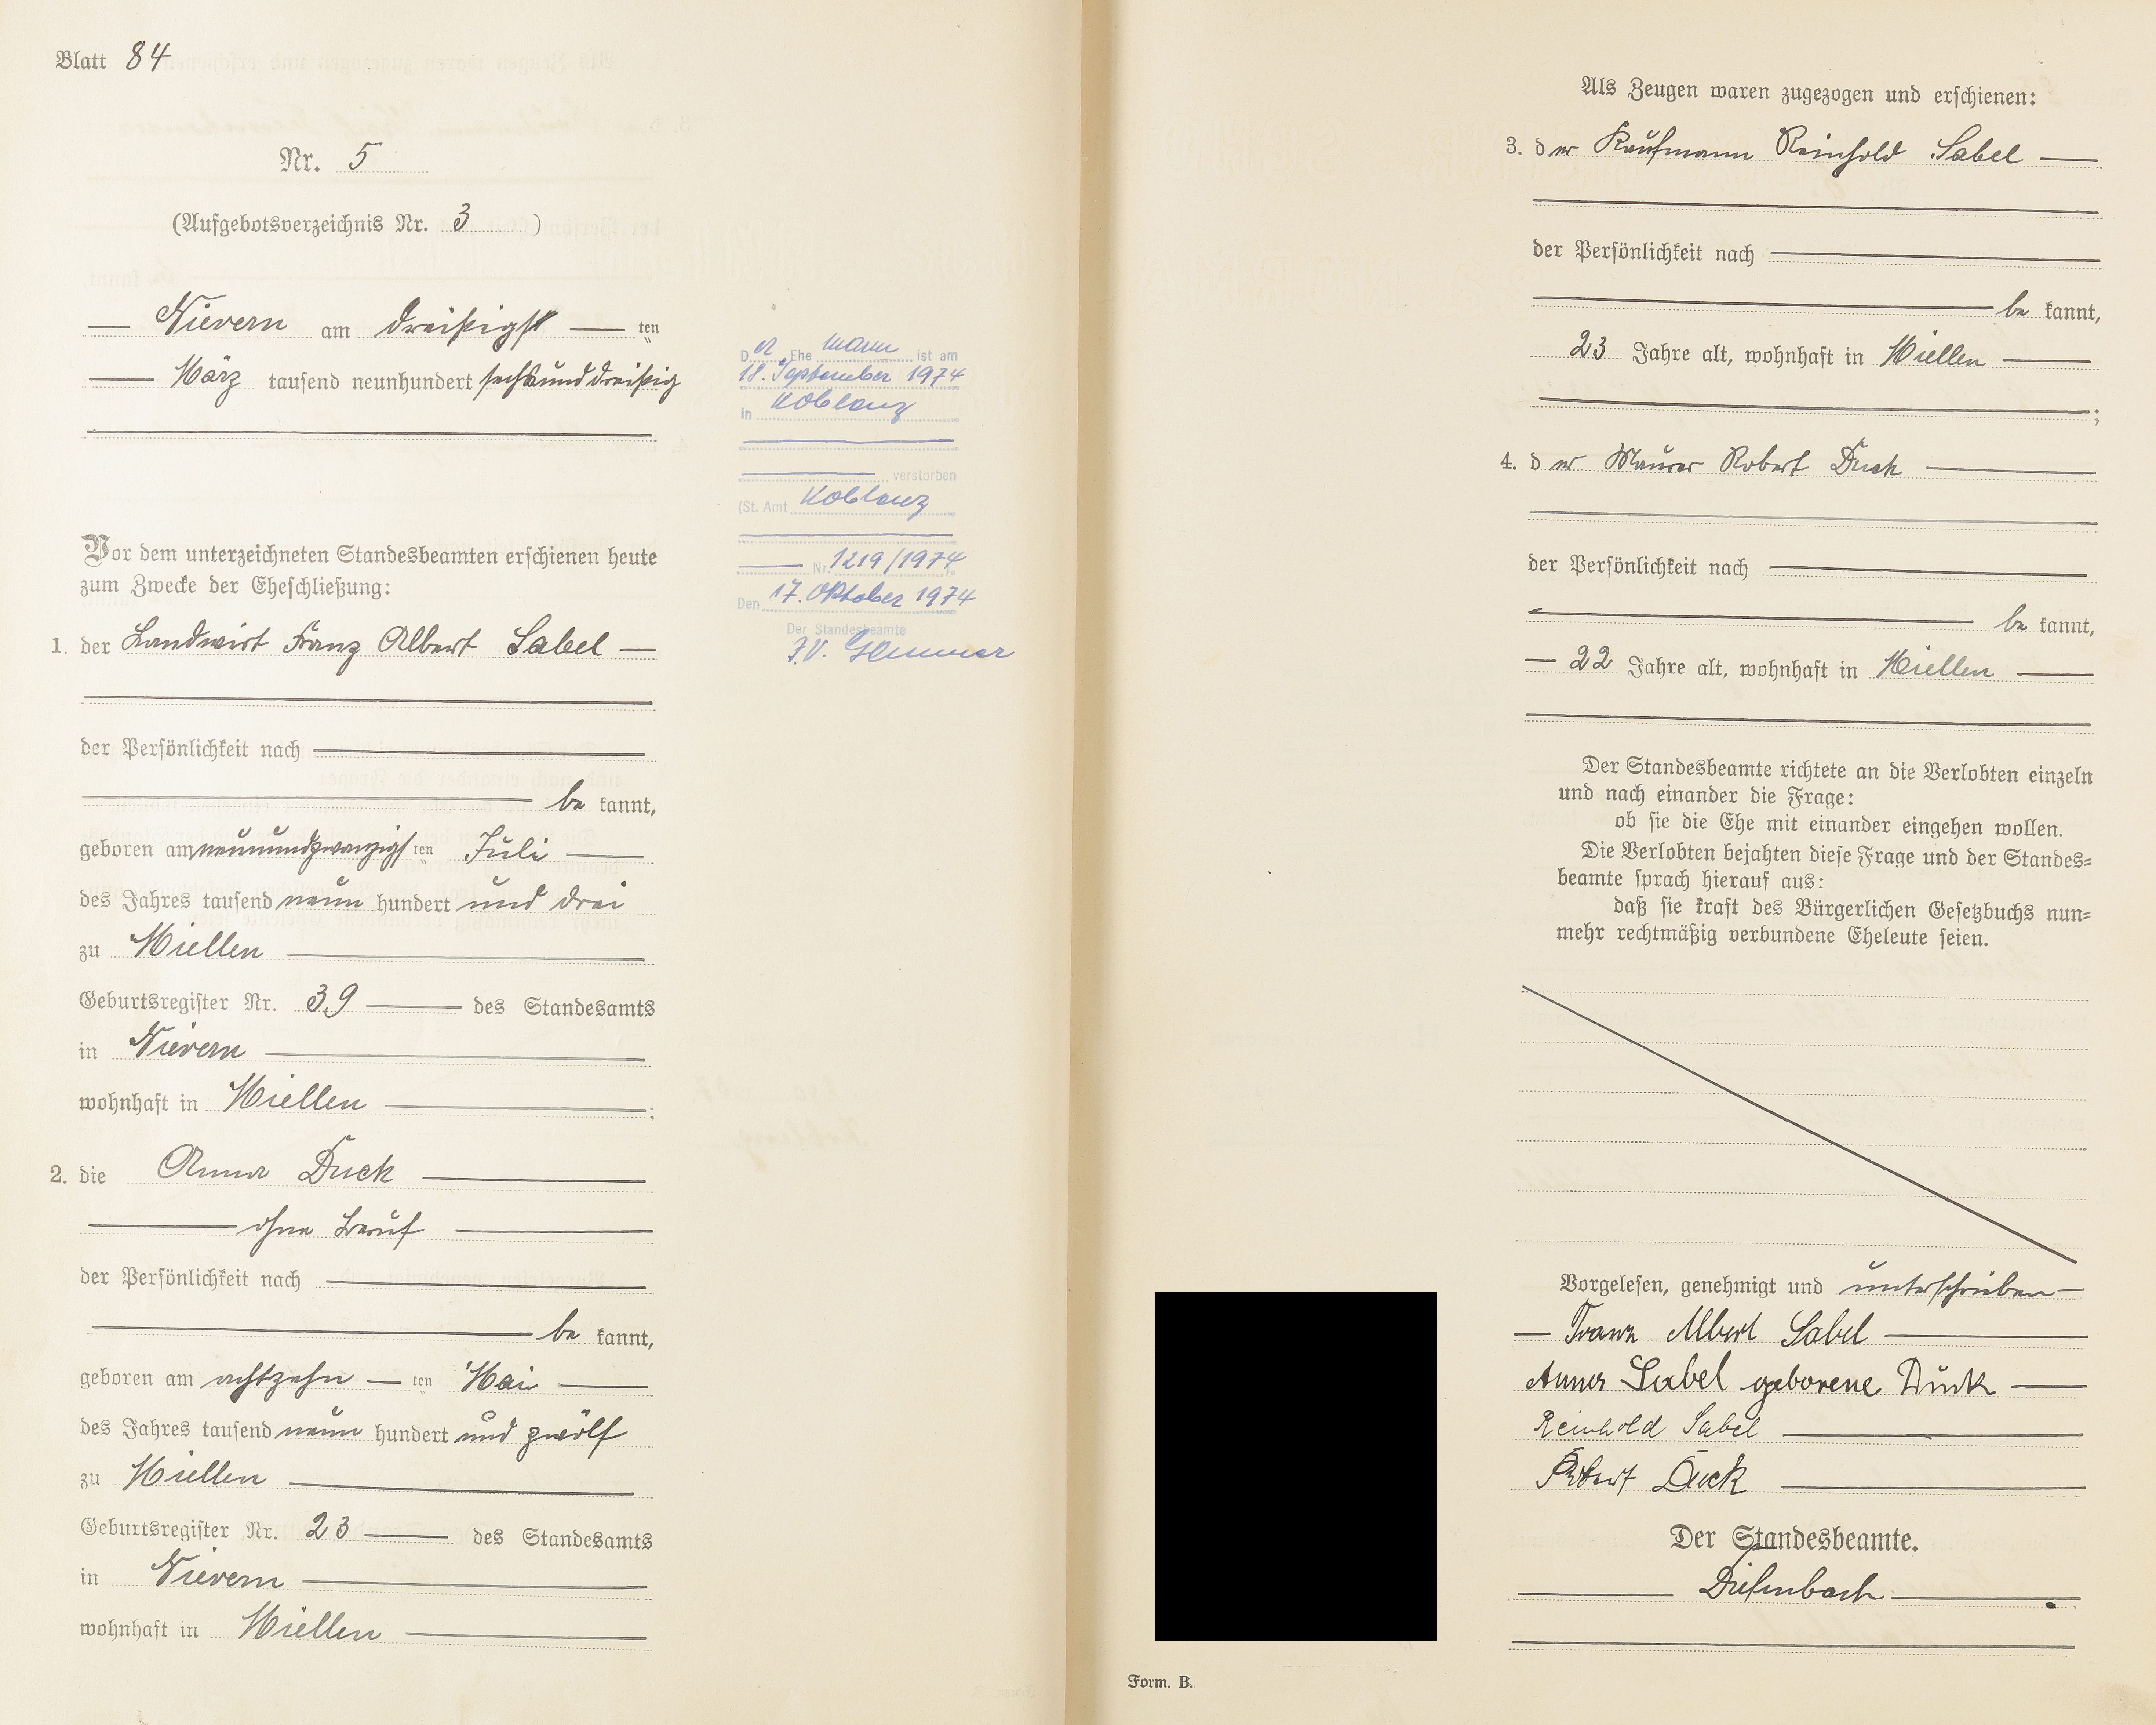 Blatt 84
Nr. 5
(Aufgebotsverzeichnis Nr. 3 )
Nievern am dreißigst ten
März tausend neunhundert sechsunddreißig
Vor dem unterzeichneten Standesbeamten erschienen heute
zum Zwecke der Eheschließung:
1. der Landwirt Franz Albert Sabel
der Persönlichkeit nach
be kannt,
geboren am neunundzwanzigst ten Juli
des Jahres tausend neun hundert und drei
zu Miellen
Geburtsregister Nr. 39 des Standesamts
in Nievern
wohnhaft in Miellen ;
2. die Anna Duck
ohne Beruf
der Persönlichkeit nach
be kannt,
geboren am achtzehn ten Mai
des Jahres tausend neun hundert und zwölf
zu Miellen
Geburtsregister Nr. 23 des Standesamts
in Nievern
wohnhaft in Miellen
D er Ehe mann ist am
18. September 1974
in Koblenz
verstorben
(St. Amt Koblenz
Nr. 1219/1974
Den 17. Oktober 1974
Der Standesbeamte
I.V.
Als Zeugen waren zugezogen und erschienen:
3. d er Kaufmann Reinhold Sabel
der Persönlichkeit nach
be kannt,
23 Jahre alt, wohnhaft in Miellen
;
4. d er Maurer Robert Duck
der Persönlichkeit nach
be kannt,
22 Jahre alt, wohnhaft in Miellen
Der Standesbeamte richtete an die Verlobten einzeln
und nach einander die Frage:
ob sie die Ehe mit einander eingehen wollen.
Die Verlobten bejahten diese Frage und der Standes=
beamte sprach hierauf aus:
daß sie kraft des Bürgerlichen Gesetzbuchs nun=
mehr rechtmäßig verbundene Eheleute seien.
Vorgelesen, genehmigt und unterschrieben
Franz Albert Sabel
Anna Sabel geborene Duck
Reinhold Sabel
Robert Duck
Der Standesbeamte.
Diefenbach
Form. B.